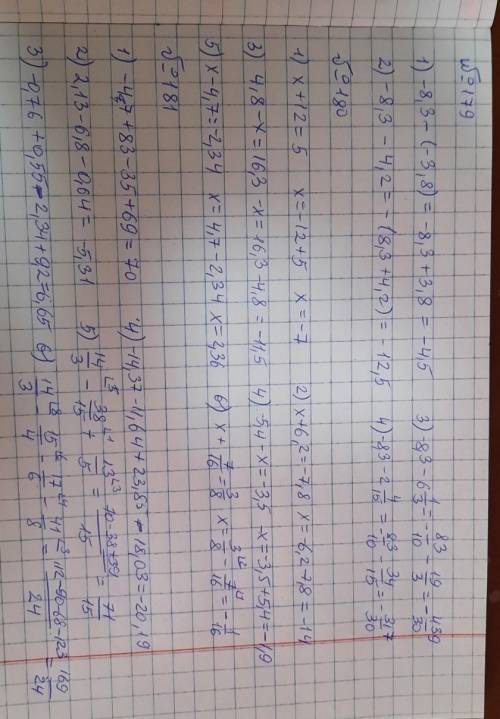 №179
1) -8,3-(-3,8)=-8,3+3,8=-4,5 3) -8,3-6 1/3=-83/10-19/3=-439/30
2) -8,3-4,2=-(8,3+4,2)=-12,5 4) -8,3-2 4/15=-83/10-34/15=-317/30
№180
1) x+12=5 x=-12+5 x=-7 2) x+6,2=-7,8 x=-6,2-7,8=-14
3) 4,8-x=16,3 -x=16,3-4,8=-11,5 4) -5,4-x=-3,5 -x=-3,5+5,4=-1,9
5) x-4,7=-2,34 x=4,7-2,34 x=2,36 6) x+7/16=3/8 x=3/8-7/16=-1/16
№181
1) -47+83-35+69=70 4) -14,37-11,64+23,85+18,03=20,19
2) 2,13-6,8-0,64=-5,31 5) 14/3-38/15+13/5=70-38+39/15=71/15
3) -0,76+0,55-2,34+9,2=6,65 6)